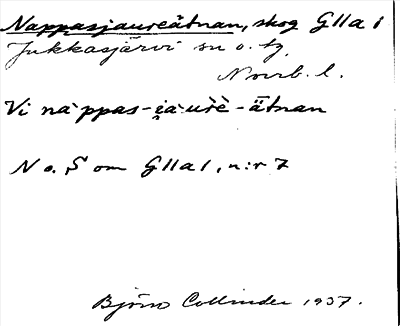 Nappasjaureätnan, skog G11a1
Jukkasjärvi sn o. tg.
Norrb. l.
Vi nàppas-i̯a·urè-ätnan
N o. S om G11a1, n:r 7
Björn Collinder 1937.